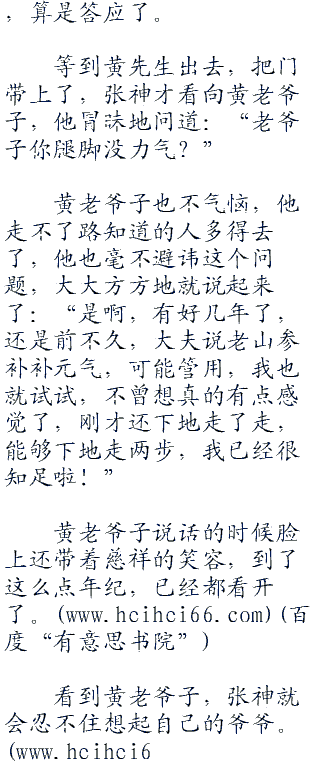 ，算是答应了。
等到黄先生出去，把门
带上了，张神才看向黄老爷
子，他冒昧地问道：“老爷
子你腿脚没力气？”
黄老爷子也不气恼，他
走不了路知道的人多得去
了，他也毫不避讳这个问
题，大大方方地就说起来
了：“是啊，有好几年了，
还是前不久，大夫说老山参
补补元气，可能管用，我也
就试试，不曾想真的有点感
觉了，刚才还下地走了走，
能够下地走两步，我已经很
知足啦！”
黄老爷子说话的时候脸
上还带着慈祥的笑容，到了
这么点年纪，已经都看开
了。(www.hcihci66.com)(百
度“有意思书院”)
看到黄老爷子，张神就
会忍不住想起自己的爷爷。
(www.hcihci6